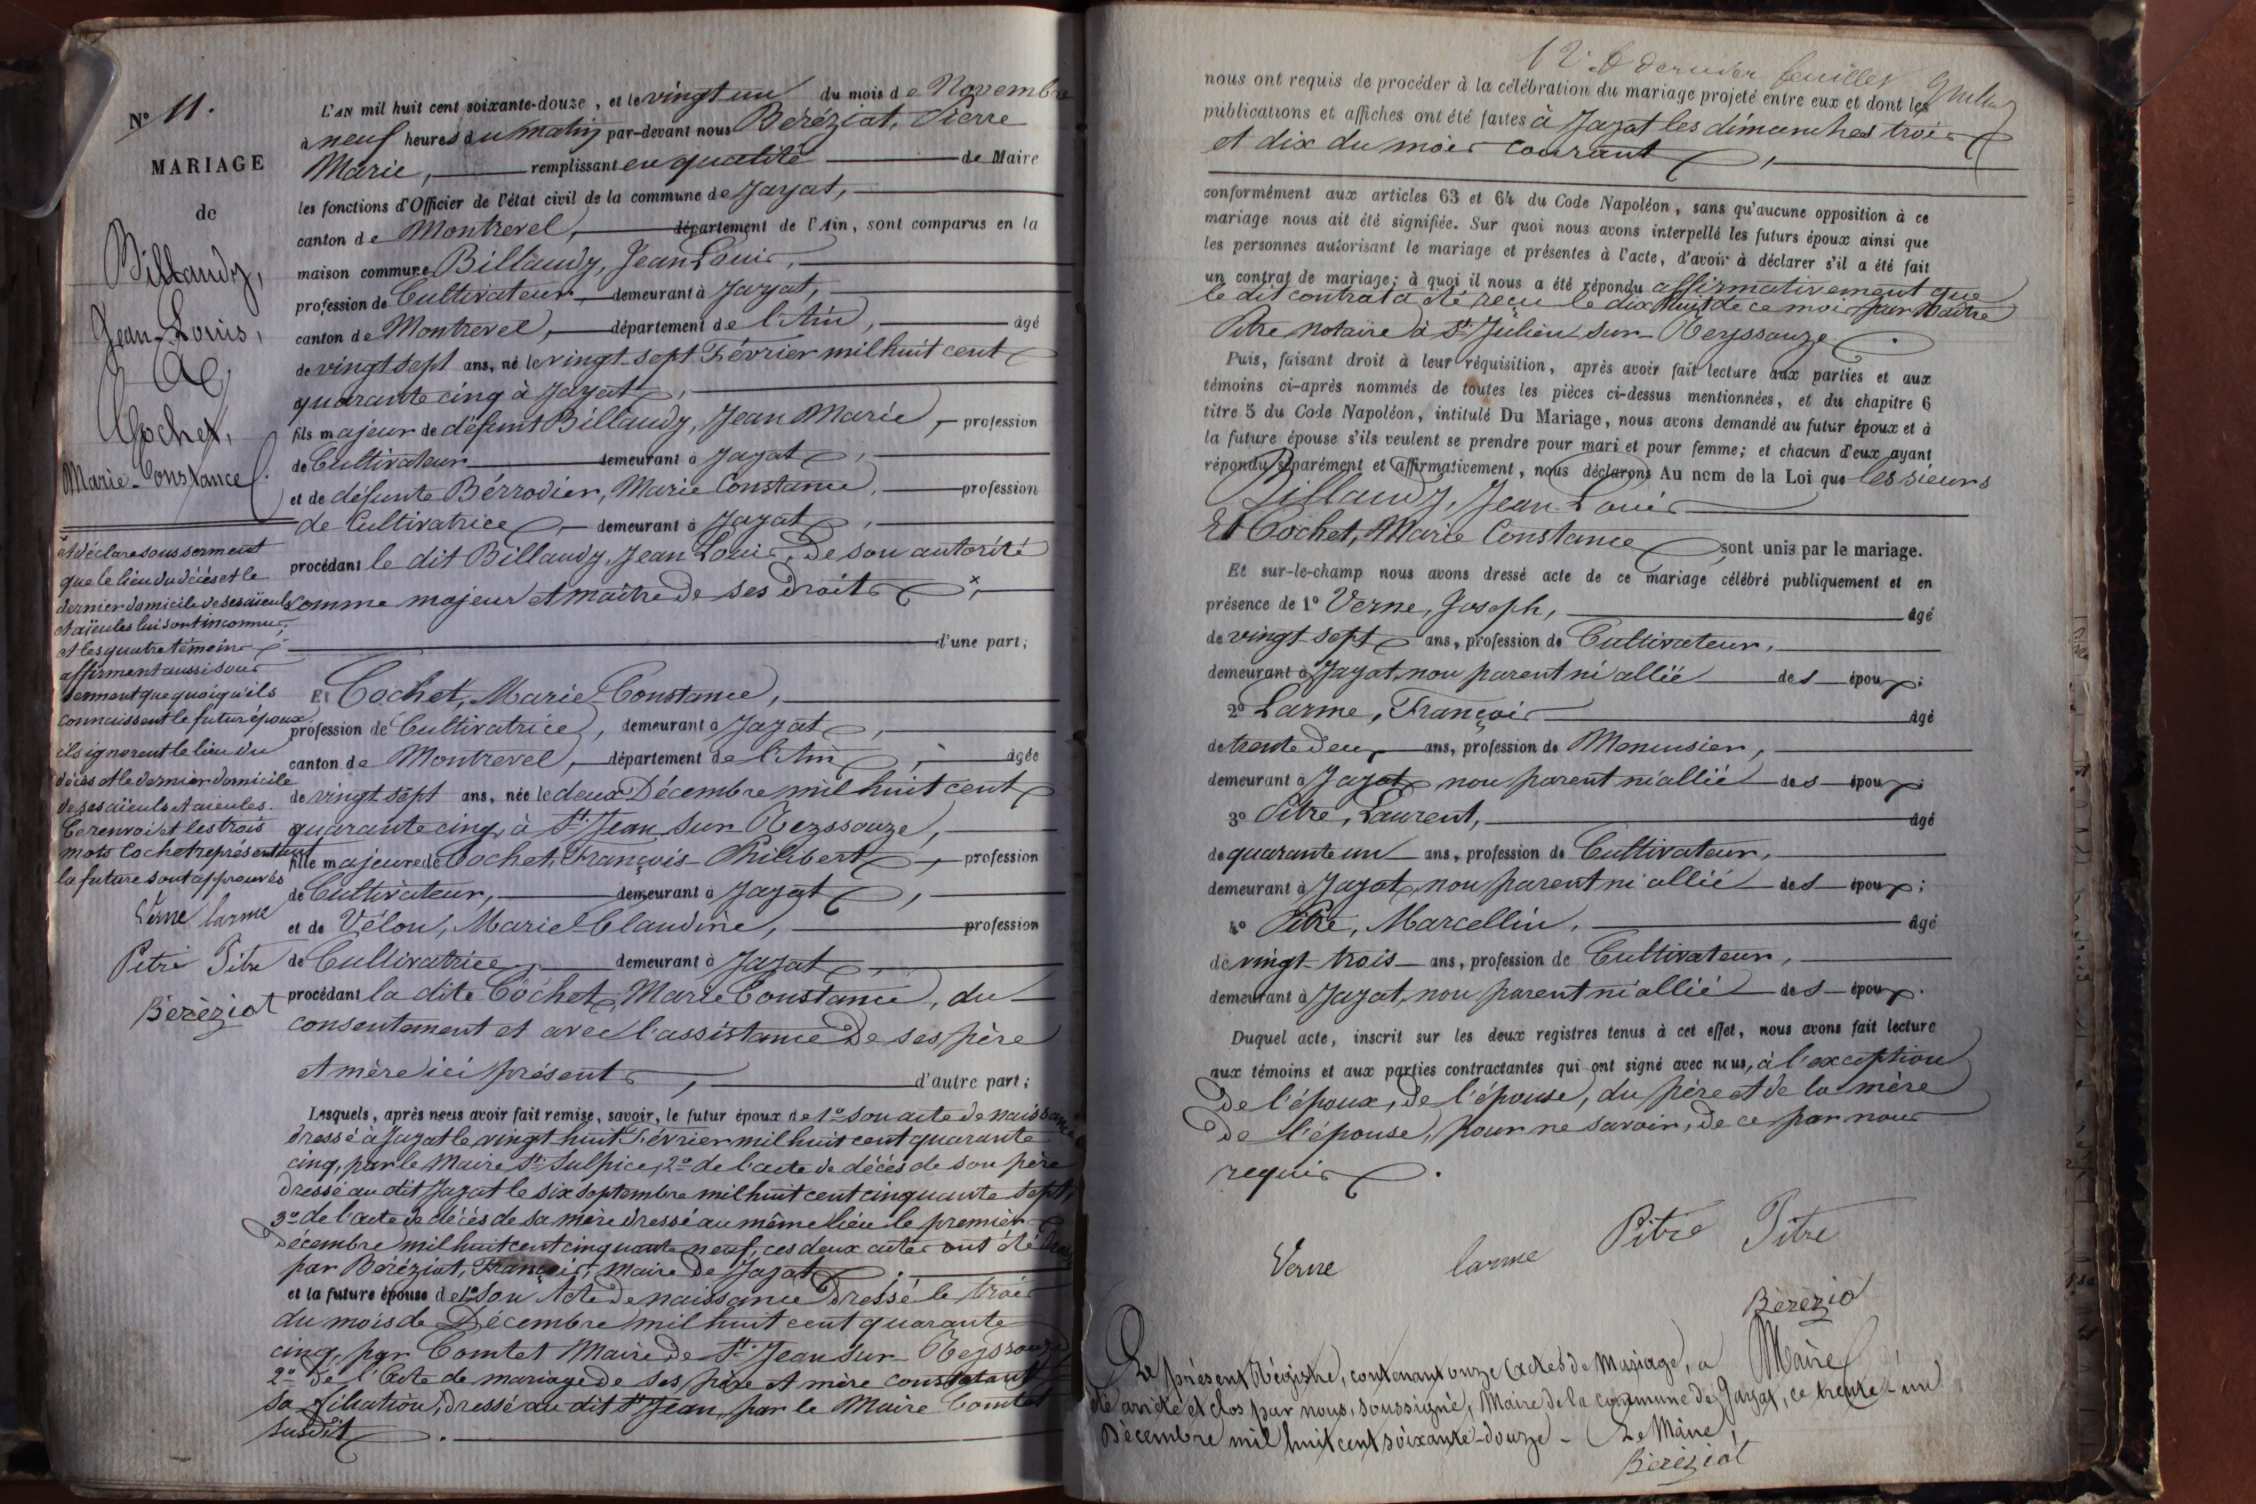 N° 11.
MARIAGE
de
Billaudy,
Jean-Louis,
&
Cochet,
Marie-Constance.
et déclare sous serment
que le lieu du décès et le
dernier domicile de ses aïeuls
et aïeules lui sont inconnus,
et les quatre témoins
affirment aussi sous
serment que quoiqu'ils
connaissent le futur époux
ils ignorent le lieu du
décès et le dernier domicile
de ses aïeuls et aïeules.
Ce renvoi et les trois
mots Cochet représentant
la future sont approuvés
Verne larme
Pitre Pitre
Béréziat
L'AN mil huit cent soixante-douze, et le vingt un du mois de Novembre
à neuf heures du matin par-devant nous Béréziat, Pierre
Marie, remplissant en qualité de Maire
les fonctions d'Officier de l'état civil de la commune de Jayat,
canton de Montrevel, département de l'Ain, sont comparus en la
maison commune Billaudy, Jean Louis,
profession de Cultivateur, demeurant à Jayat,
canton de Montrevel, département de l'Ain, âgé
de vingt sept ans, né le vingt-sept Février mil huit cent
quarante cinq à Jayat,
fils majeur de défunt Billaudy, Jean Marie, profession
de Cultivateur demeurant à Jayat,
et de défunte Bérrodier, Marie Constance, profession
de Cultivatrice demeurant à Jayat,
procédant le dit Billaudy, Jean Louis, de son autorité
comme majeur et maître de ses droits x,
d'une part;
Et Cochet, Marie-Constance,
profession de Cultivatrice, demeurant à Jayat,
canton de Montrevel, département de l'Ain, âgée
de vingt sept ans, née le deux Décembre mil huit cent
quarante cinq, à St Jean sur Reyssouze,
fille majeure de Cochet, François-Philibert, profession
de Cultivateur, demeurant à Jayat,
et de Vélon, Marie-Claudine, profession
de Cultivatrice, demeurant à Jayat,
procédant la dite Cochet, Marie Constance, du
consentement et avec l'assistance de ses père
et mère ici présents, d'autre part;
Lesquels, après nous avoir fait remise, savoir, le futur époux de 1° son acte de naissance
dressé à Jayat le vingt huit Février mil huit cent quarante
cinq, par le Maire St Sulpice, 2° de l'acte de décès de son père
dressé au dit Jayat le six septembre mil huit cent cinquante sept,
3° de l'acte de décès de sa mère dressé au même lieu le premier
Décembre mil huit cent cinquante neuf, ces deux actes ont été
par Béréziat, François, Maire de Jayat.
et la future épouse de 1° son Acte de naissance dressé le trois
du mois de Décembre mil huit cent quarante
cinq, par Comtet Maire de St Jean sur Reyssouze
2° de l'Acte de mariage de ses père et mère constatant
sa filiation, dressé au dit St Jean, par le Maire Comtet
susdit.
12e & dernier feuillet
nous ont requis de procéder à la célébration du mariage projeté entre eux et dont les
publications et affiches ont été faites à Jayat les dimanches trois
et dix du mois courant,
conformément aux articles 63 et 64 du Code Napoléon, sans qu'aucune opposition à ce
mariage nous ait été signifiée. Sur quoi nous avons interpellé les futurs époux ainsi que
les personnes autorisant le mariage et présentes à l'acte, d'avoir à déclarer s'il a été fait
un contrat de mariage; à quoi il nous a été répondu affirmativement que
le dit contrat a été reçu le dix huit de ce mois par Maître
Pitre notaire à St Julien sur Reyssouze.
Puis, faisant droit à leur réquisition, après avoir fait lecture aux parties et aux
témoins ci-après nommés de toutes les pièces ci-dessus mentionnées, et du chapitre 6
titre 5 du Code Napoléon, intitulé Du Mariage, nous avons demandé au futur époux et à
la future épouse s'ils veulent se prendre pour mari et pour femme; et chacun d'eux ayant
répondu séparément et affirmativement, nous déclarons Au nom de la Loi que les sieurs
Billaudy, Jean Louis
Et Cochet, Marie Constance sont unis par le mariage.
Et sur-le-champ nous avons dressé acte de ce mariage célébré publiquement et en
présence de 1° Verne, Joseph, âgé
de vingt-sept ans, profession de Cultivateur,
demeurant à Jayat, non parent ni allié des époux;
2° Larme, François âgé
de trente deux ans, profession de Menuisier,
demeurant à Jayat non parent ni allié des époux;
3° Pitre, Laurent, âgé
de quarante un ans, profession de Cultivateur,
demeurant à Jayat, non parent ni allié des époux;
4° Pitre, Marcellin, âgé
de vingt-trois ans, profession de Cultivateur,
demeurant à Jayat, non parent ni allié des époux.
Duquel acte, inscrit sur les deux registres tenus à cet effet, nous avons fait lecture
aux témoins et aux parties contractantes qui ont signé avec nous, à l'exception
de l'époux, de l'épouse, du père et de la mère
de l'épouse, pour ne savoir, de ce par nous
requis.
Verne larme Pitre Pitre
Béréziat
Maire
Le présent Régistre, contenant onze Actes de Mariage, a
été arrêté et clos par nous, soussigné, Maire de la commune de Jayat, ce trente-un
Décembre mil huit cent soixante-douze - Le Maire,
Béréziat